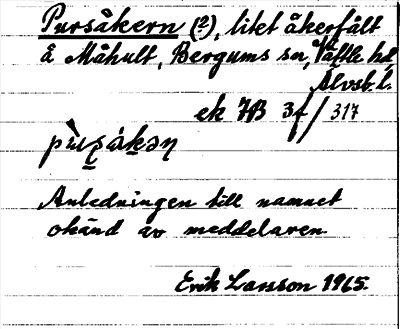 Pursåkern (2), litet åkerfält
å Måhult, Bergums sn, Vättle hd,
Älvsb. l.
ek 7B 3f/317
Anledningen till namnet
okänd av meddelaren.
Erik Larsson 1965.